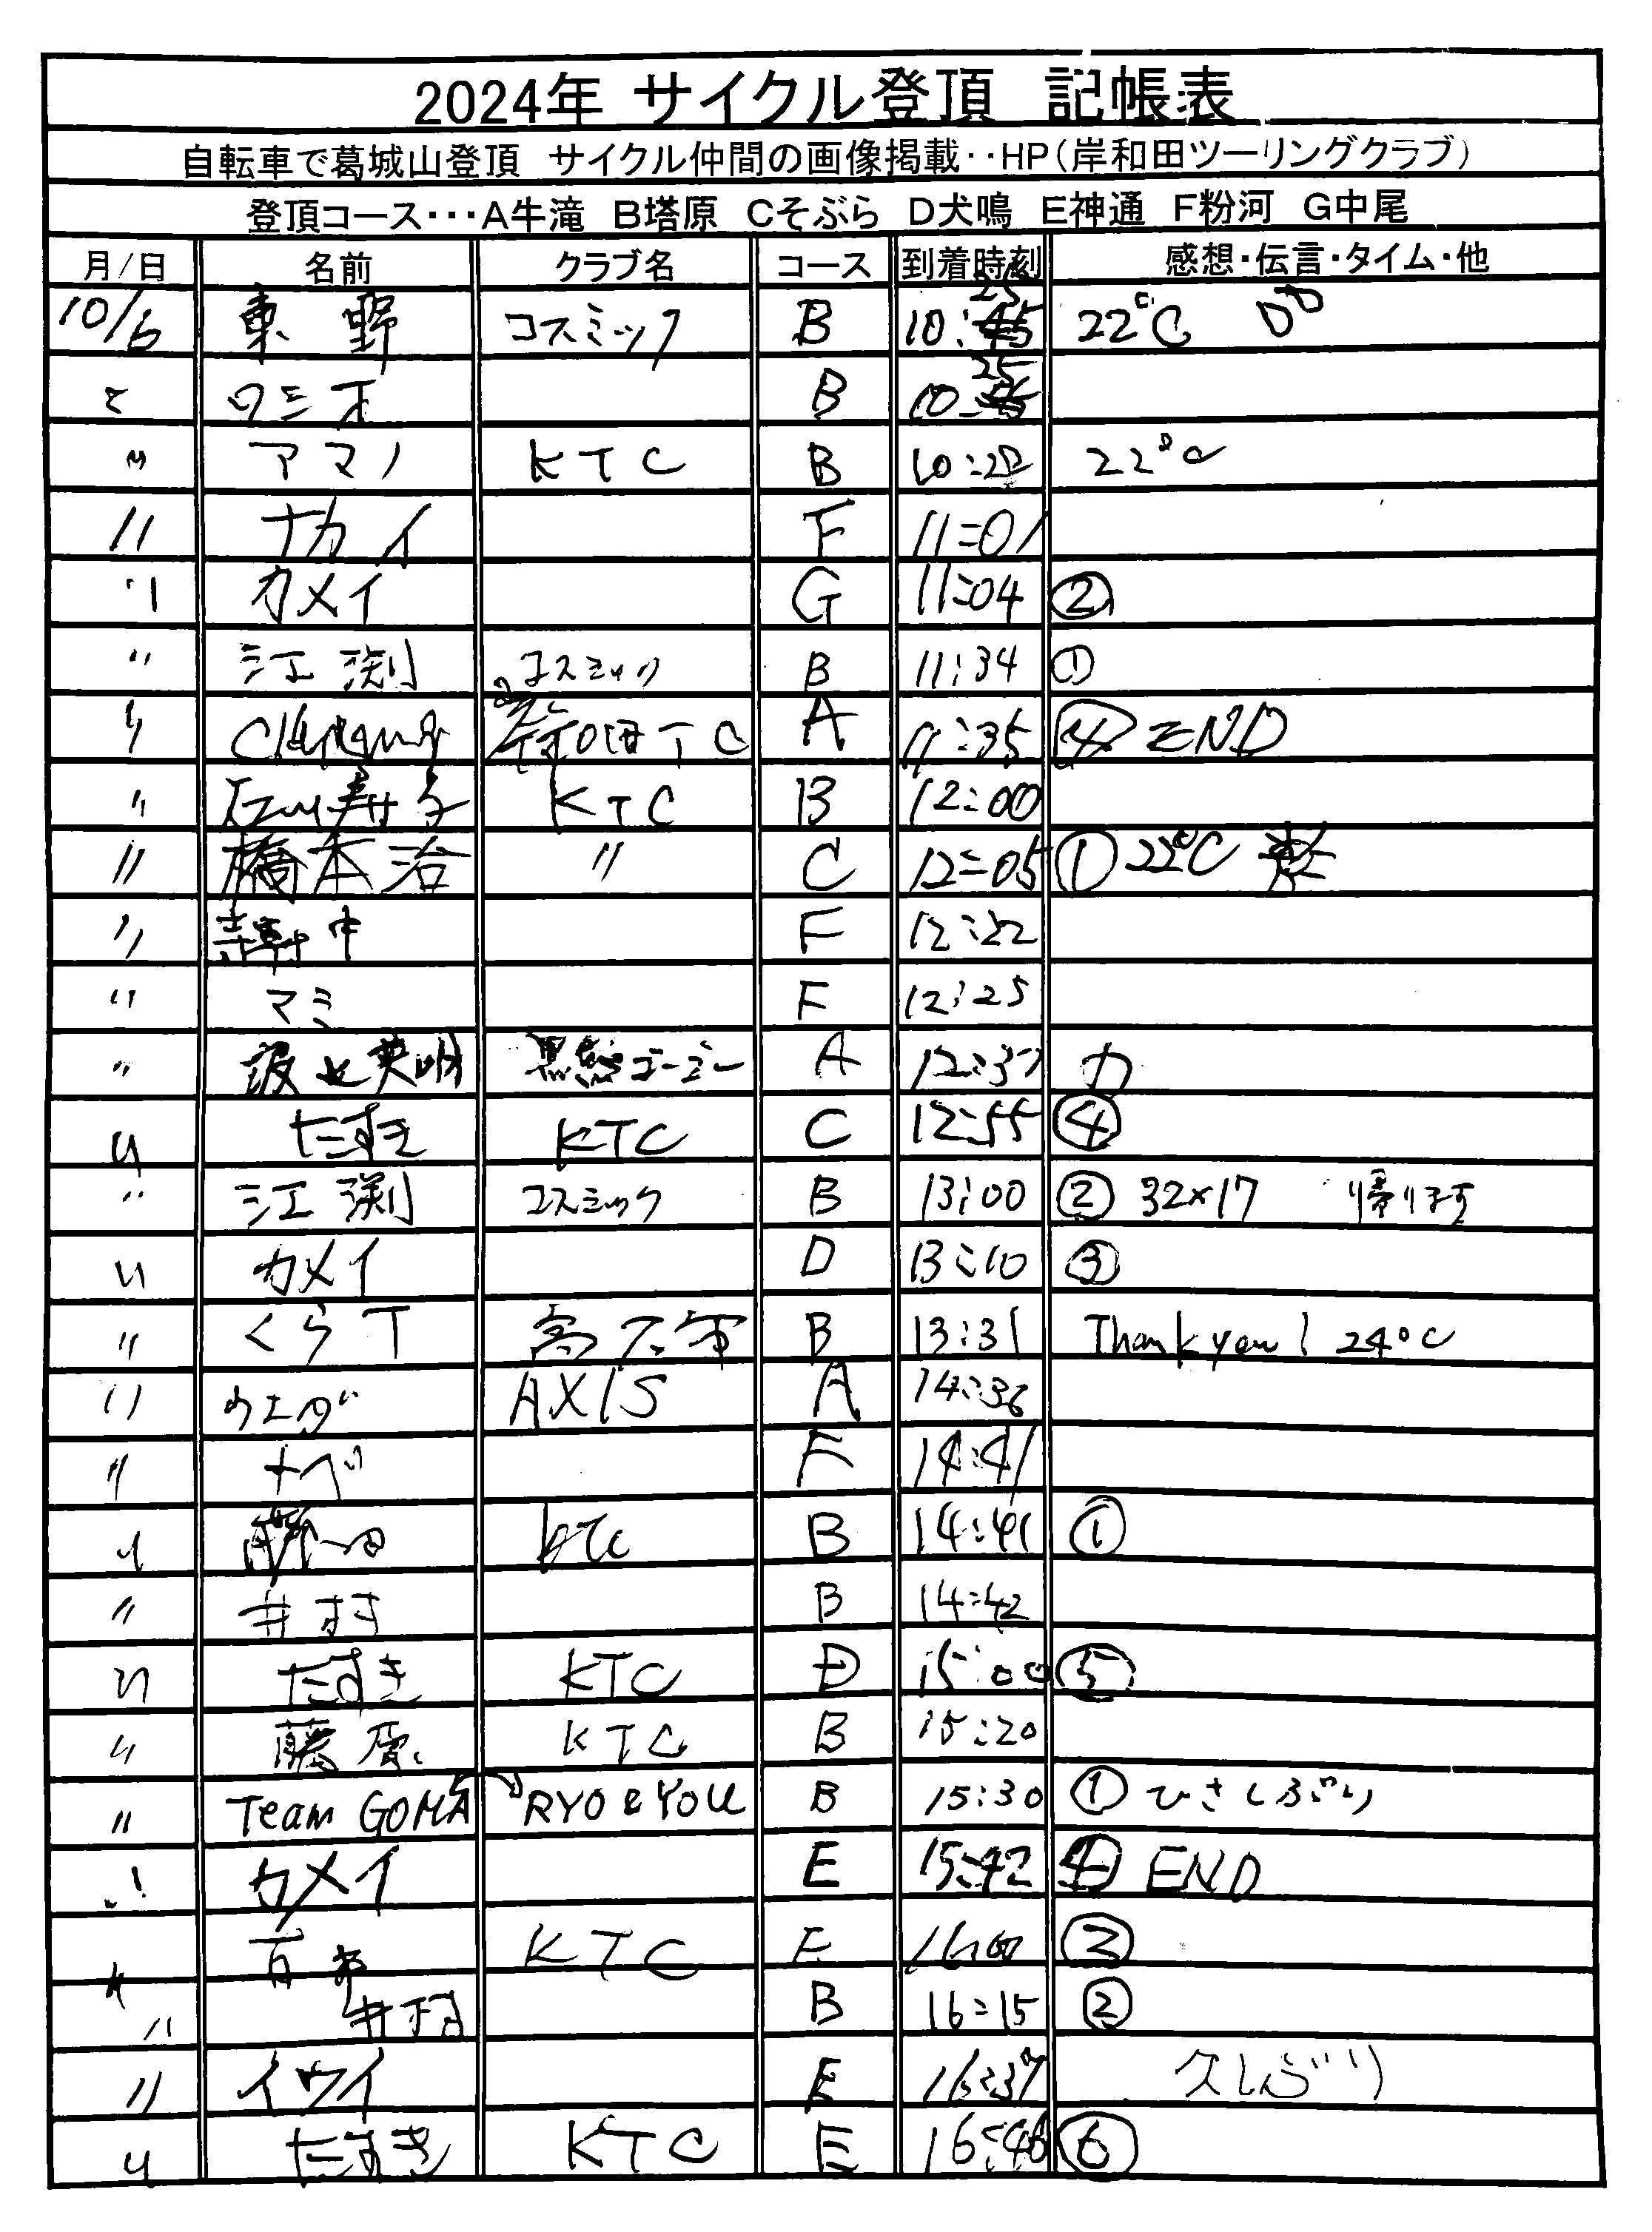 2024年 サイクル登頂 記帳表
自転車で葛城山登頂 サイクル仲間の画像掲載‥HP(岸和田ツーリングクラブ)
登頂コース･･･A牛滝 B塔原 Cそぶら D犬鳴 E神通 F粉河 G中尾
月/日 名前 クラブ名 コース 到着時刻 感想・伝言・タイム・他
10/6 東野 コスミック B 10:25 22℃
〃 ワシオ B 10:25
〃 アマノ KTC B 10:28 22℃
〃 ナカイ F 11:01
〃 カメイ G 11:04 ②
〃 江渕 コスミック B 11:34 ①
〃 岸和田TC A 11:35 ④ END
〃 KTC B 12:00
〃 橋本治 〃 C 12:05 ① 22℃
〃 F 12:22
〃 マミ F 12:25
〃 英明 黒熊ゴーゴー A 12:37 カ
〃 たすき KTC C 12:55 ④
〃 江渕 コスミック B 13:00 ② 32×17 帰ります
〃 カメイ D 13:10 ③
〃 くらT B 13:31 Thank you! 24℃
〃 ウエダ AXIS A 14:36
〃 ナベ F 14:41
〃 KTC B 14:41 ①
〃 井村 B 14:42
〃 たすき KTC D 15:00 ⑤
〃 藤原 KTC B 15:20
〃 Team GOMA RYO & YOU B 15:30 ① ひさしぶり
〃 カメイ E 15:42 ④ END
〃 KTC E 16:00 ③
〃 井村 B 16:15 ②
〃 イワイ E 16:37 久しぶり
〃 たすき KTC E 16:46 ⑥